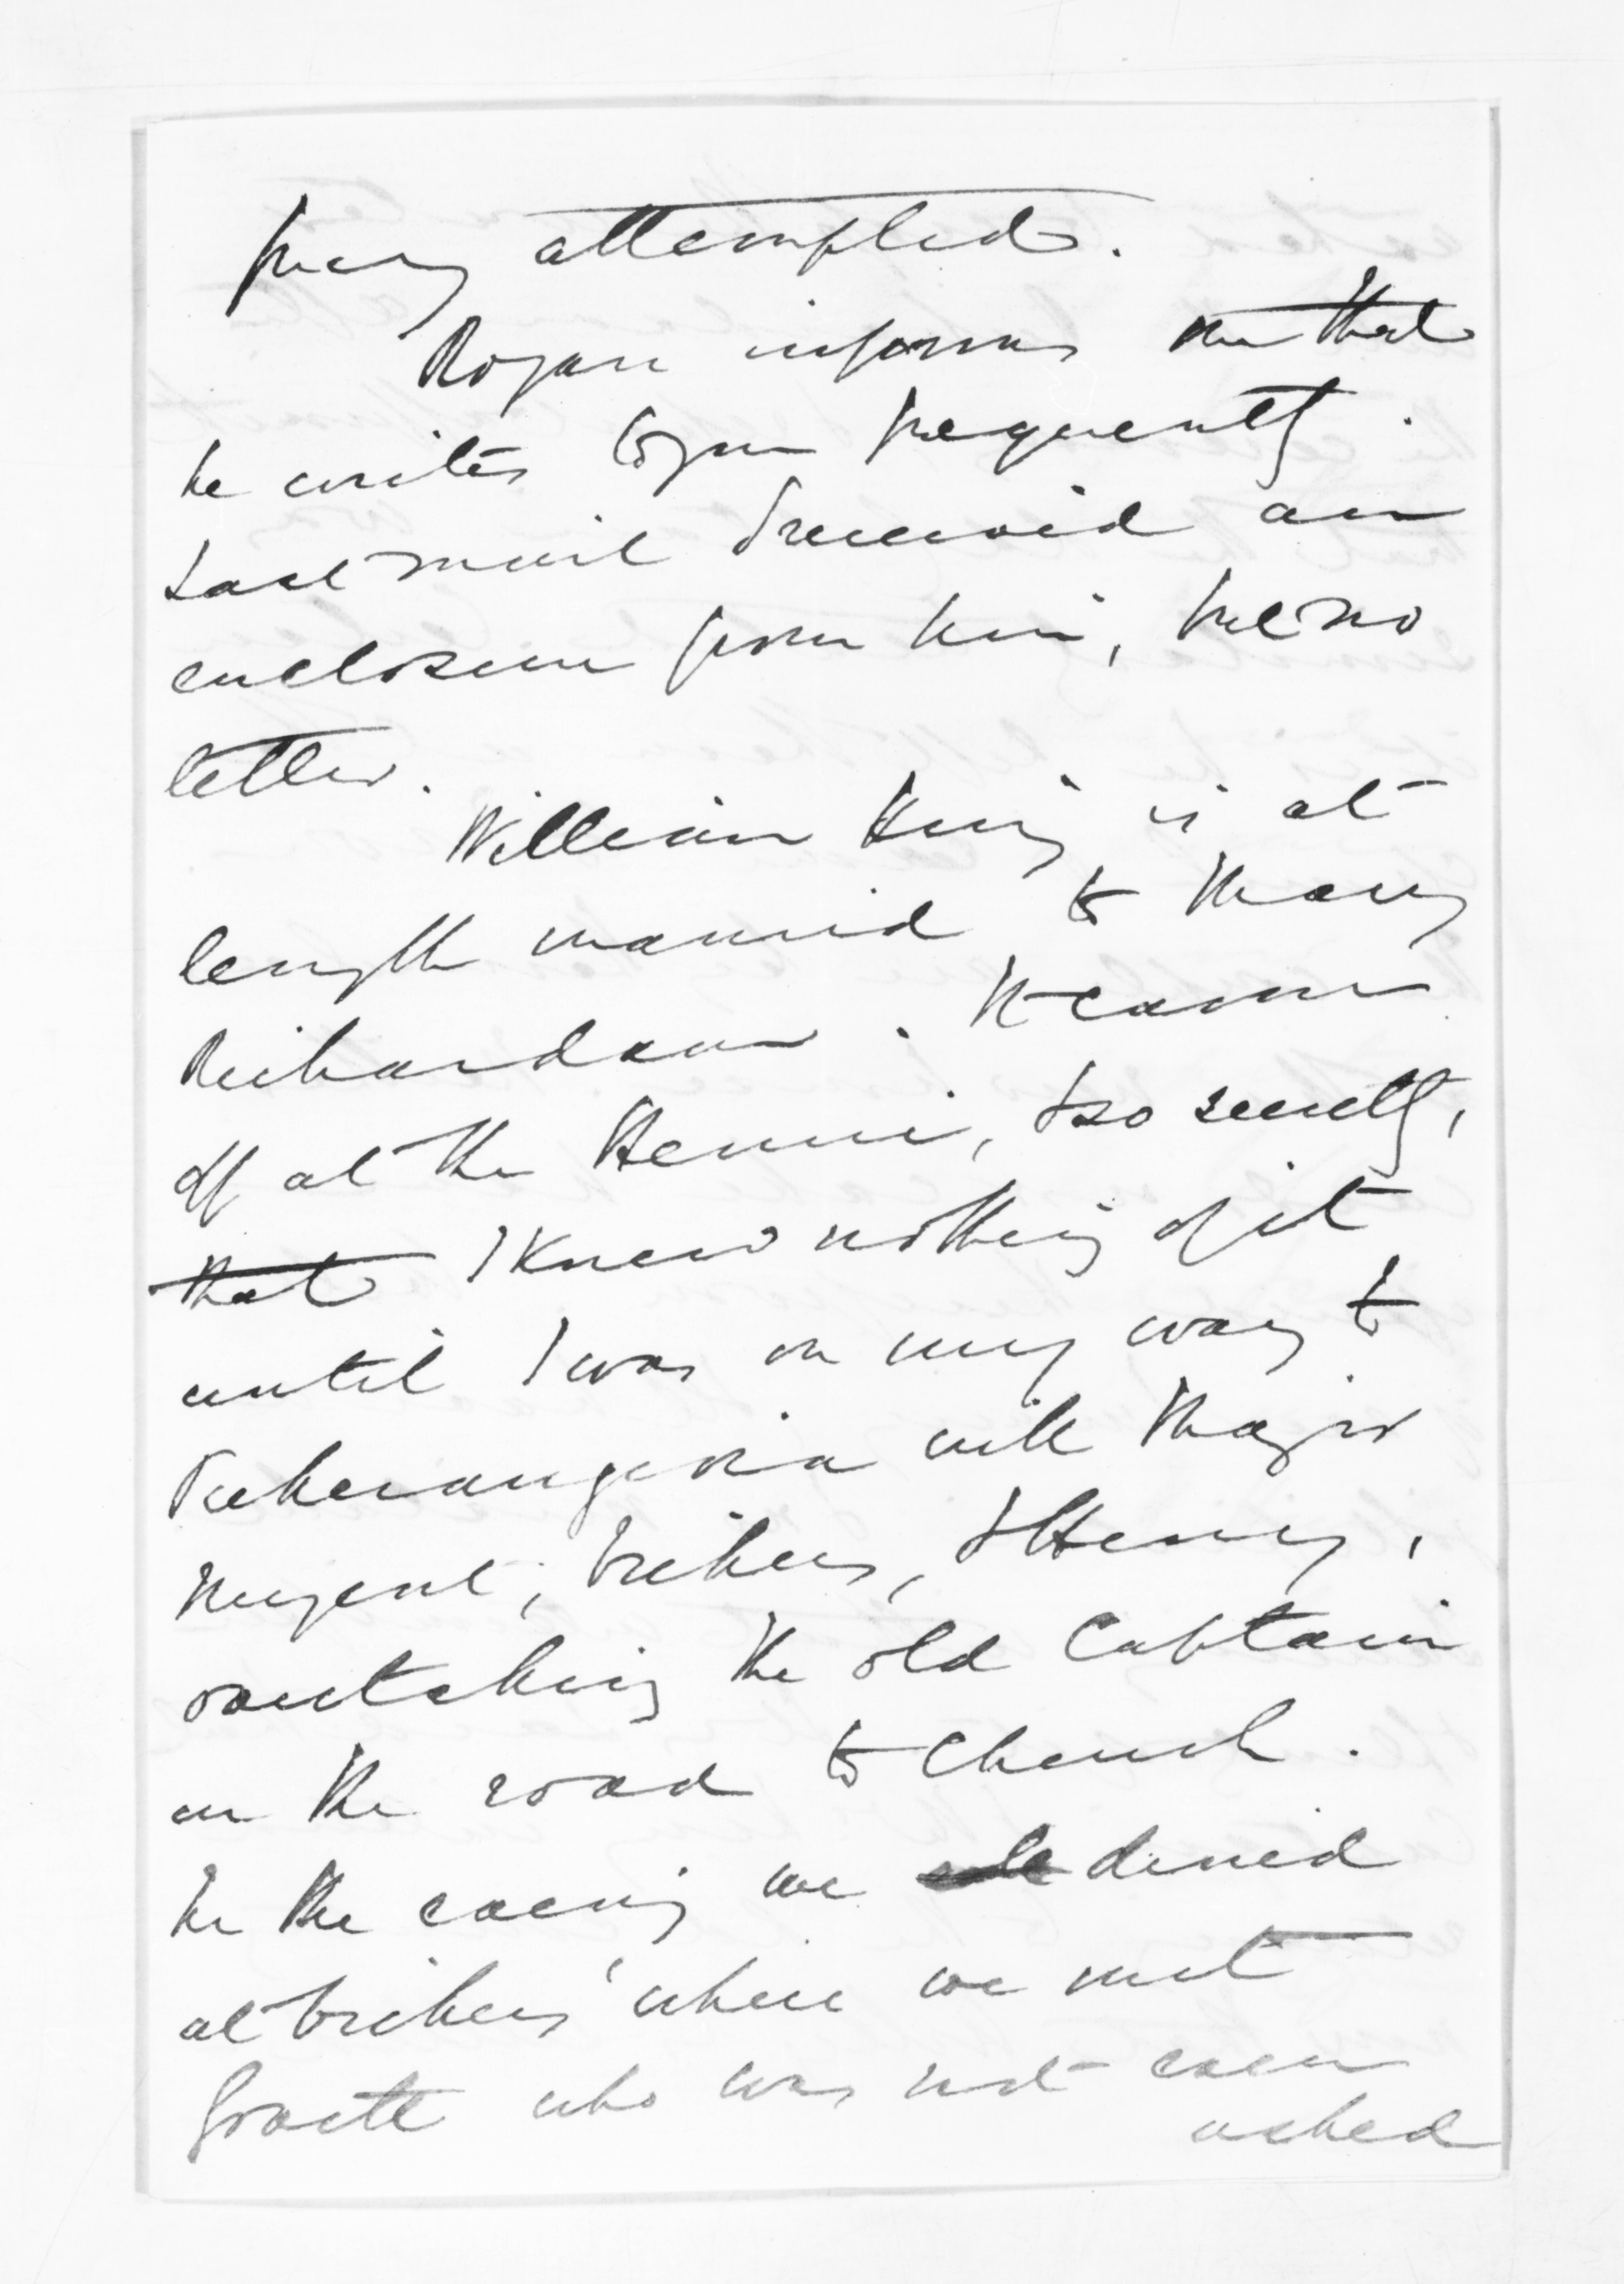 attempted.
Rogan informs me that
he writes to you frequently.
Last mail I received an
enclosure from him, but no
letter.
William King is at
length married to Mary
Richardson. It came
off at the Henui, & so secretly,
that I knew nothing of it
until I was on my way to
with Major
Nugent, & Henry,
the old Captain
on the road to Church.
In the evening we dined
at where we met
who was not even
asked